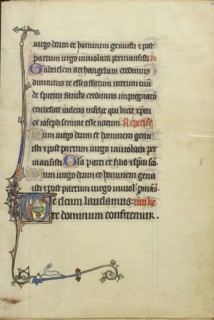 uirgo deum et hominem genuisti et post
partum uirgo inuiolata permansisti
Gabrielem archangelum credimus
diuinitus te esse affatum uterum tuum
de spiritu sancto credimus impregnatum
erubescat iudeus infelix qui dicit xpm
ex ioseph semine esse natum
Dum uirgo deum et hominem genuisti
et post partum uirgo inuiolata per
mansisti Gloria patri et filio et spiritui sancto
Dum uirgo deum et hominem genu
isti et post partum uirgo inuiol
Te deum laudamus
te dominum confitemur